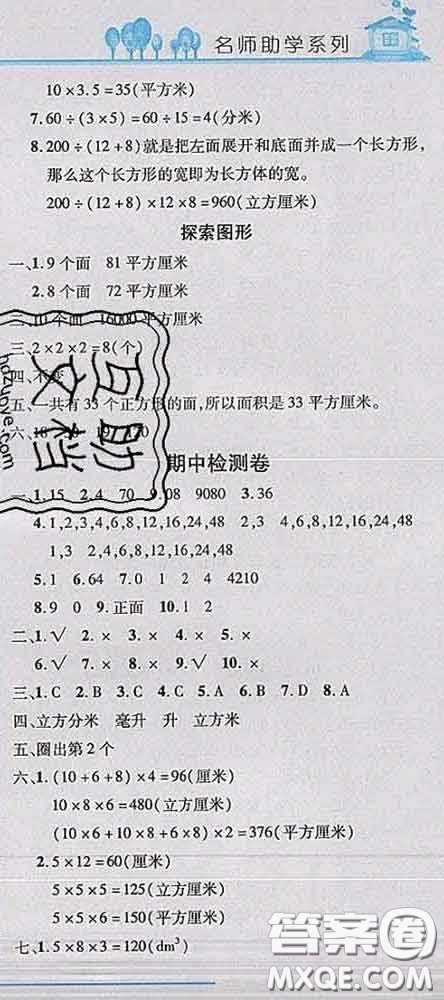 名师助学系列
10×3.5=35(平方米)
7.60÷(3×5)=60÷15=4(分米)
8.200÷(12+8)就是把左面展开和底面并成一个长方形,
那么这个长方形的宽即为长方体的宽。
200÷(12+8)×12×8=960(立方厘米)
探索图形
一、1.9个面 81平方厘米
2.8个面 72平方厘米
个面 16000平方厘米
三、2×2×2=8(个)
四、不变
五、一共有33个正方形的面,所以面积是33平方厘米。
六、18
互助文档
hdzuoye.com
期中检测卷
一、1.15 2.4 70 9.08 9080 3.36
4.1,2,3,4,6,8,12,16,24,48 2,3 4,6,8,12,16,24,48
1,3 2,4,6,8,12,16,24,48
5.1 6.64 7.0 1 2 4 4210
8.9 0 9.正面 10.1 2
二、1.√ 2.× 3.× 4.× 5.×
6.√ 7.× 8.× 9.√ 10.×
三、1.C 2.B 3.A 4.C 5.A 6.B 7.D 8.A
四、立方分米 毫升 升 立方米
五、圈出第2个
六、1.(10+6+8)×4=96(厘米)
10×8×6=480(立方厘米)
(10×6+10×8+6×8)×2=376(平方厘米)
2.5×12=60(厘米)
5×5×5=125(立方厘米)
5×5×6=150(平方厘米)
七、1.5×8×3=120(dm³)
答案圈
MXQE.COM